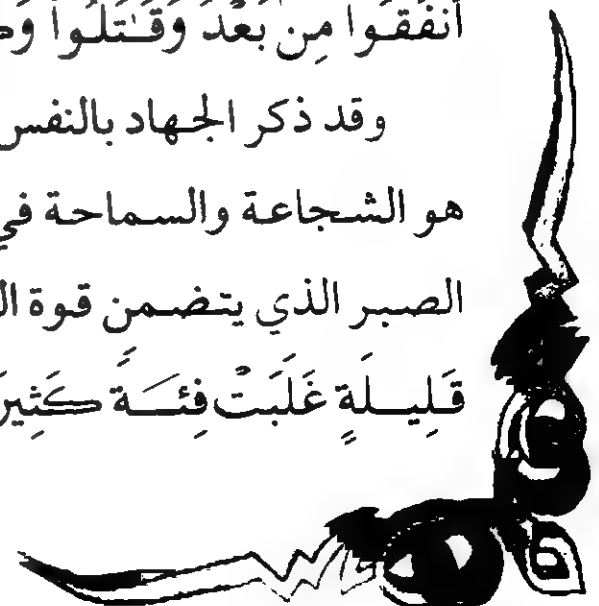 أَنفَقُوا مِن بَعْدُ وَقَـٰتَلُوا
وقد ذكر الجهاد بالنفس
هو الشجاعة والسماحة في
الصبر الذي يتضمن قوة
قَلِيلَةٍ غَلَبَتْ فِئَةً